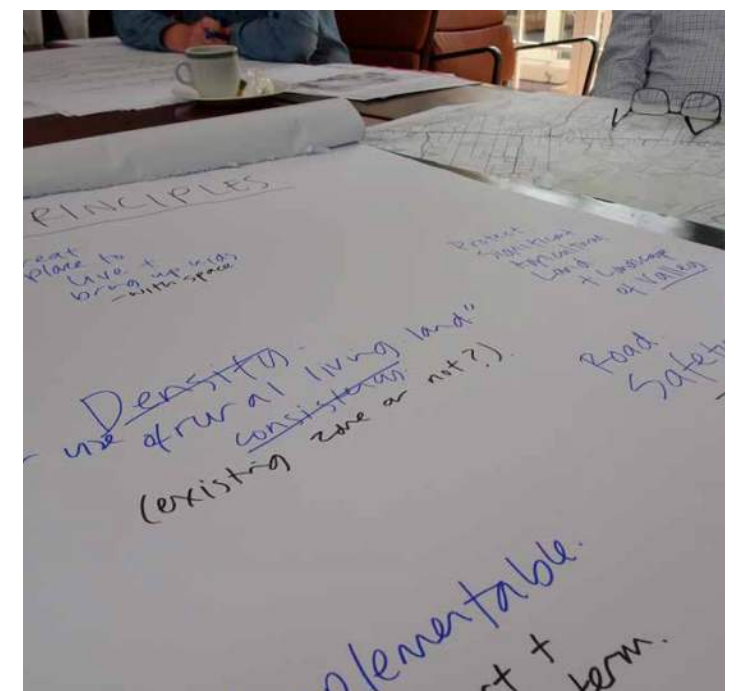 RINCIPLES
eat
place to
live +
bring up kids
- with space
Protect
Significant
Agricultural
Land
+ Landscape
of Valley
Density.
use of rural living land"
consistency
(existing zone or not?).
Road
Safety
plementable.
t +
term.